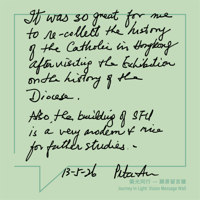 It was so great for me
to re-collect the history
of the Catholic in Hongkong
after visiting the Exhibition
on the history of the
Diocese.
Also, the building of SFU
is a very modern & nice
for further studies.-
13-5-26 Peter An
Journey in Light: Vision Message Wall